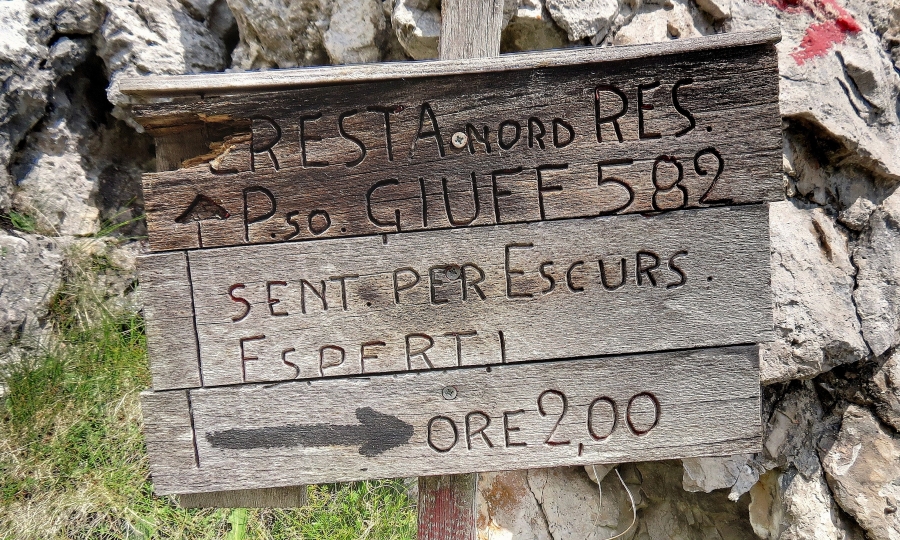 CRESTA NORD RES.
P.so. GIUFF 582
SENT. PER ESCURS.
ESPERTI
ORE 2,00